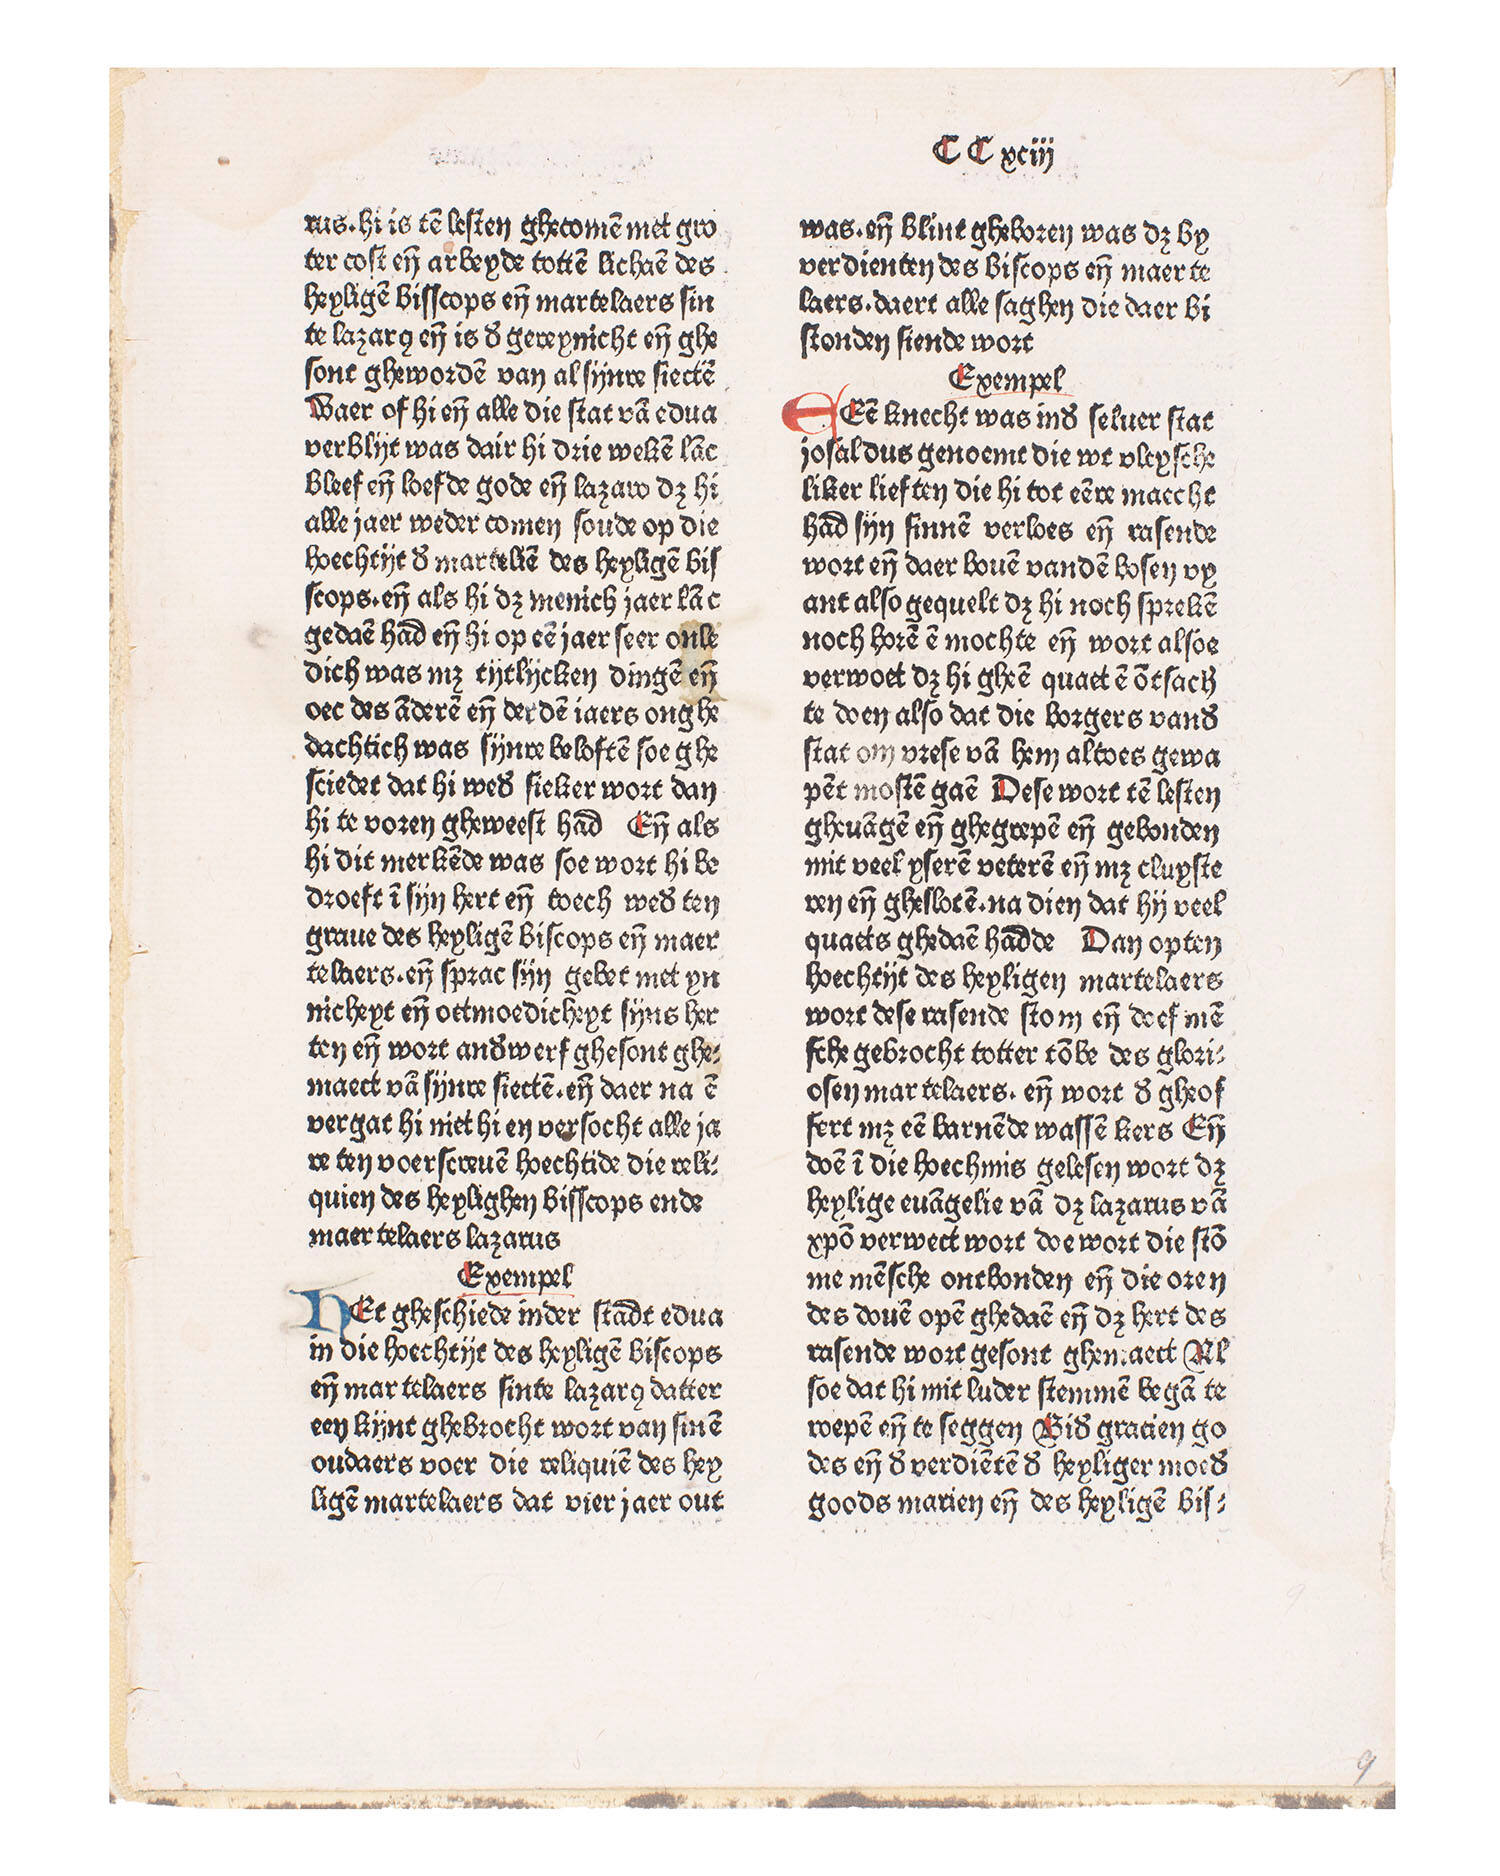 CCxciij
rus. hi is tē lesten ghecomē met gro
ter cost eñ arbeyde tottē lichaē des
heyligē bisscops eñ martelaers sin
te lazarꝯ eñ is ð gereynicht eñ ghe
sont ghewordē van al sijnre siectē
Waer of hi eñ alle die stat vā edua
verblijt was dair hi drie wekē lāc
bleef eñ loefde gode eñ lazaro dꝫ hi
alle jaer weder comen soude op die
hoechtijt ð marteliē des heyligē bis
scops. eñ als hi dꝫ menich jaer lāc
gedaē hād eñ hi op eē jaer seer onle
dich was mꝫ tijtlijcken dingē eñ
oec des āderē eñ derdē iaers onghe
dachtich was sijnre beloftē soe ghe
sciedet dat hi weð sieker wort dan
hi te voren gheweest hād Eñ als
hi dit merkēde was soe wort hi be
droeft ī sijn hert eñ toech weð ten
graue des heyligē biscops eñ maer
telaers. eñ sprac sijn gebet met yn
nicheyt eñ oetmoedicheyt sijns her
ten eñ wort anðwerf ghesont ghe⸗
maect vā sijnre siectē. eñ daer na ē
vergat hi niet hi en versocht alle ja
re ten voerscreuē hoechtide die reli⸗
quien des heylighen bisscops ende
maertelaers lazarus
Exempel
HEt gheschiede inder stadt edua
in die hoechtijt des heyligē biscops
eñ martelaers sinte lazarꝯ datter
een kijnt ghebrocht wort van sinē
oudaers voer die reliquiē des hey
ligē martelaers dat vier jaer out
was. eñ blint gheboren was dꝫ by
verdienten des biscops eñ maerte
laers. daert alle saghen die daer bi
stonden siende wort
Exempel
EEē knecht was inð seluer stat
josaldus genoemt die wt vleysche
liker lieften die hi tot eēre maecht
hād sijn sinnē verloes eñ rasende
wort eñ daer bouē vandē bosen vy
ant also gequelt dꝫ hi noch sprekē
noch horē ē mochte eñ wort alsoe
verwoet dꝫ hi gheē quaet ē ōtsach
te doen also dat die borgers vanð
stat om vrese vā hem altoes gewa
pēt mostē gaē Dese wort tē lesten
gheuāgē eñ ghegrepē eñ gebonden
mit veel yserē veterē eñ mꝫ cluyste
ren eñ gheslotē. na dien dat hij veel
quaets ghedaē hādde Dan opten
hoechtijt des heyligen martelaers
wort dese rasende stom eñ doef mē
sche gebrocht totter tōbe des glori⸗
osen martelaers. eñ wort ð gheof
fert mꝫ eē barnēde wassē kers Eñ
doē ī die hoechmis gelesen wort dꝫ
heylige euāgelie vā dꝫ lazarus vā
xpō verwect wort doe wort die stō
me mēsche ontbonden eñ die oren
des douē opē ghedaē eñ dꝫ hert des
rasende wort gesont ghemaect Al
soe dat hi mit luder stemmē begā te
roepē eñ te seggen Bið gracien go
des eñ ð verdiētē ð heyliger moeð
goods marien eñ des heyligē bis⸗
9